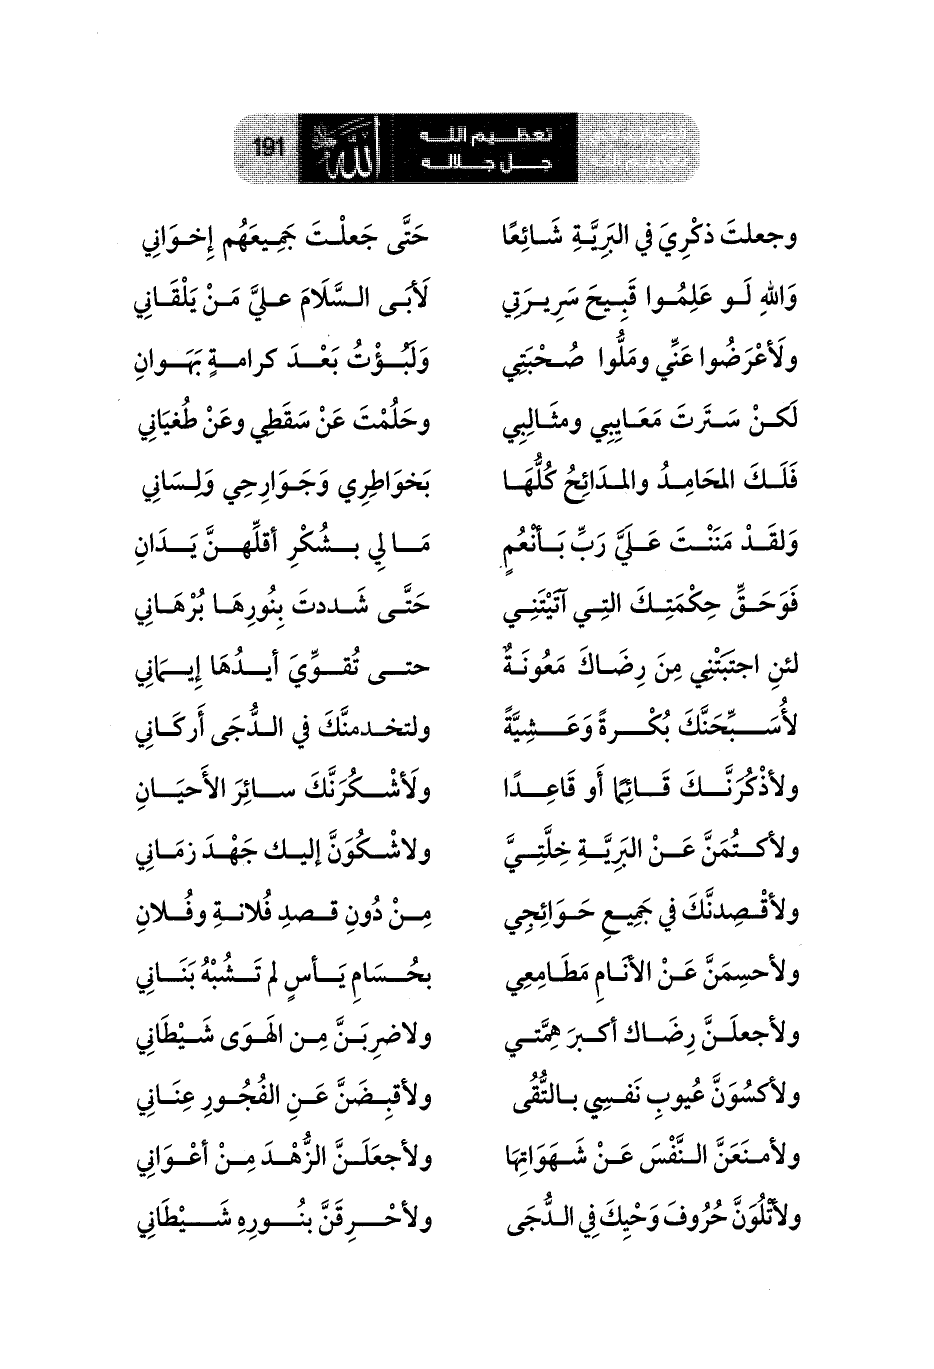 191
الله
تعظيم الله
جل جلاله
وجعلتَ ذكْرِيَ في البَرِيَّةِ شَائِعًا حَتَّى جَعلْتَ جَمِيعَهُم إِخوَانِي
وَاللهِ لَو عَلِمُوا قَبِيحَ سَرِيرَتِي لَأَبَى السَّلَامَ عليَّ مَنْ يَلْقَانِي
ولَأعْرَضُوا عَنِّي ومَلُّوا صُحْبَتِي وَلَبُؤْتُ بَعْدَ كرامةٍ بَهَوانِ
لَكنْ سَتَرتَ مَعَايِبِي ومثَالِبِي وحَلُمْتَ عَنْ سَقَطِي وعَنْ طُغيَانِي
فَلَكَ المحَامِدُ والمدَائِحُ كُلُّهَا بَخوَاطِرِي وَجَوَارِحِي وَلِسَانِي
وَلقَدْ مَنَنْتَ عَليَّ رَبِّ بَأَنْعُمٍ مَا لِي بِشُكْرِ أقلِّهنَّ يَدَانِ
فَوَحَقِّ حِكْمَتِكَ التِي آتَيْتَنِي حَتَّى شَددتَ بِنُورِهَا بُرْهَانِي
لئنِ اجتَبَتْنِي مِنَ رِضَاكَ مَعُونَةٌ حتى تُقوِّيَ أيدُهَا إِيمَانِي
لأُسَبِّحَنَّكَ بُكْرةً وَعَشِيَّةً ولتخدمنَّكَ في الدُّجَى أركَانِي
ولأذْكُرَنَّكَ قَائِمًا أو قَاعِدًا ولَأشْكُرَنَّكَ سائِرَ الأَحيَانِ
ولأكتُمَنَّ عَنْ البَرِيَّةِ خِلَّتِيَّ ولاشْكُوَنَّ إليك جَهْدَ زمَانِي
ولأقْصِدنَّكَ في جَمِيعِ حَوَائِجِي مِنْ دُونِ قصدِ فُلانةِ وفُلانِ
ولأحسِمَنَّ عَنْ الأنَامِ مَطَامِعِي بحُسَامِ يَأسٍ لم تَشُبْهُ بَنَانِي
ولأجعلَنَّ رِضَاكَ أكبرَ هِمَّتي ولاضرِبَنَّ مِن الهَوَى شَيْطَانِي
ولأكسُوَنَّ عُيوبَ نَفسِي بالتُّقُى ولأقبِضَنَّ عَنِ الفُجُورِ عِنَانِي
ولأمنَعَنَّ النَّفْسَ عَنْ شَهَوَاتِهَا ولأجعَلَنَّ الزُّهْدَ مِنْ أعْوَانِي
ولأتْلُوَنَّ حُرُوفَ وَحْيِكَ فِي الدُّجَى ولأحْرِقَنَّ بنُورِهِ شَيْطَانِي